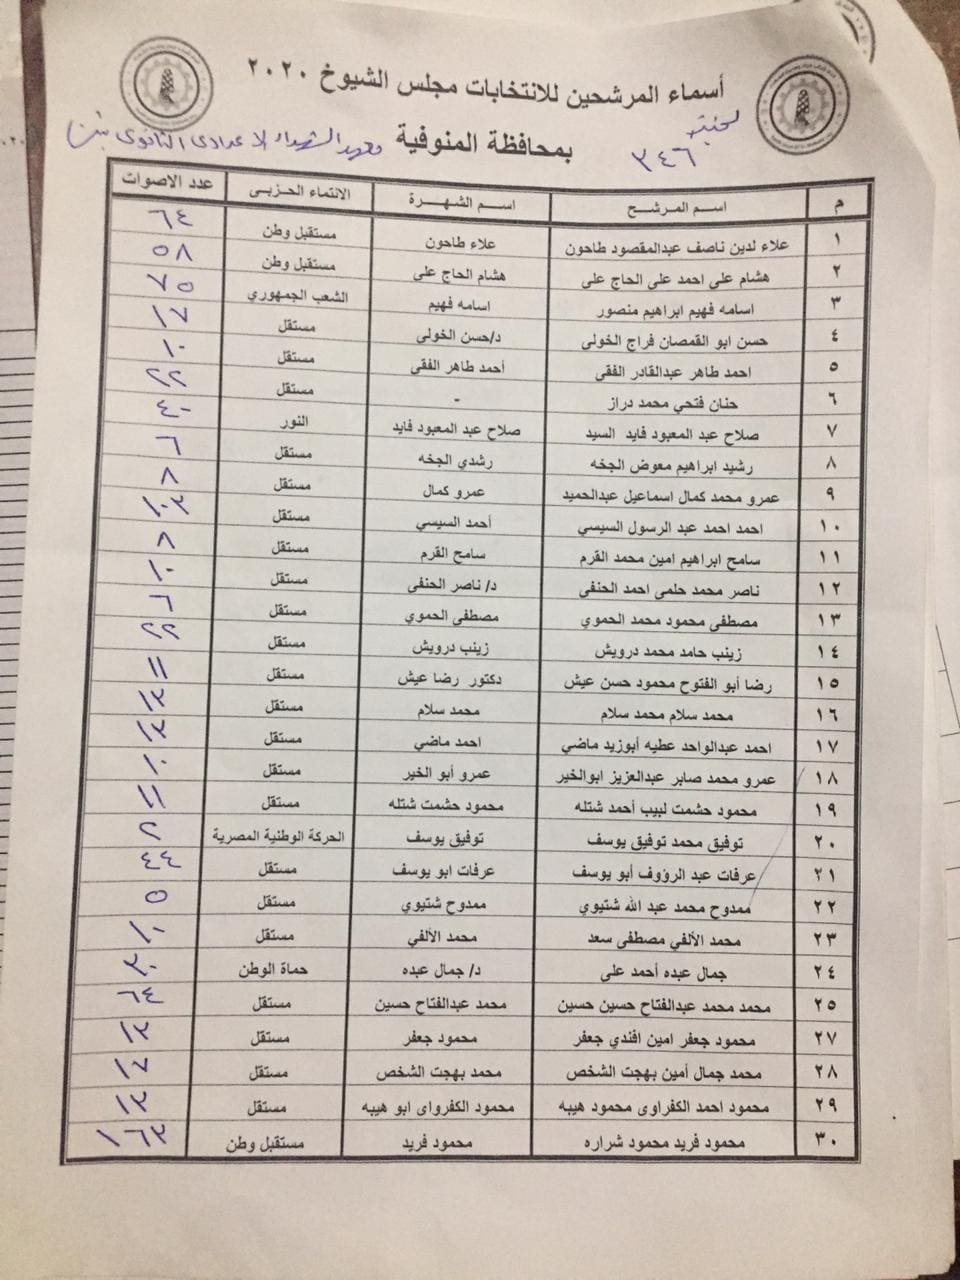 أسماء المرشحين للانتخابات مجلس الشيوخ ٢٠٢٠
بمحافظة المنوفية
لجنة ٣٤٦
معهد الشهداء الاعدادى الثانوى بنين
م اسم المرشح اسم الشهرة الانتماء الحزبى عدد الاصوات
١ علاء لدين ناصف عبدالمقصود طاحون علاء طاحون مستقبل وطن ٦٤
٢ هشام على احمد على الحاج على هشام الحاج على مستقبل وطن ٥٨
٣ اسامه فهيم ابراهيم منصور اسامه فهيم الشعب الجمهوري ٧٥
٤ حسن ابو القمصان فراج الخولى د/حسن الخولى مستقل ١٧
٥ احمد طاهر عبدالقادر الفقى أحمد طاهر الفقى مستقل ١٠
٦ حنان فتحي محمد دراز - مستقل ٢٢
٧ صلاح عبد المعبود فايد السيد صلاح عبد المعبود فايد النور ٤٠
٨ رشيد ابراهيم معوض الجخه رشدي الجخه مستقل ٦
٩ عمرو محمد كمال اسماعيل عبدالحميد عمرو كمال مستقل ٨
١٠ احمد احمد عبد الرسول السيسي أحمد السيسي مستقل ١٠٣
١١ سامح ابراهيم امين محمد القرم سامح القرم مستقل ٨
١٢ ناصر محمد حلمى احمد الحنفى د/ ناصر الحنفى مستقل ١٠
١٣ مصطفى محمود محمد الحموي مصطفى الحموي مستقل
١٤ زينب حامد محمد درويش زينب درويش مستقل ٢٢
١٥ رضا أبو الفتوح محمود حسن عيش دكتور رضا عيش مستقل ١١
١٦ محمد سلام محمد سلام محمد سلام مستقل ١٣
١٧ احمد عبدالواحد عطيه أبوزيد ماضي احمد ماضي مستقل ١٣
١٨ عمرو محمد صابر عبدالعزيز ابوالخير عمرو أبو الخير مستقل ١٠
١٩ محمود حشمت لبيب أحمد شتله محمود حشمت شتله مستقل ١١
٢٠ توفيق محمد توفيق يوسف توفيق يوسف الحركة الوطنية المصرية ٢
٢١ عرفات عبد الرؤوف أبو يوسف عرفات ابو يوسف مستقل ٤٤
٢٢ ممدوح محمد عبد الله شتيوي ممدوح شتيوي مستقل ٥
٢٣ محمد الألفي مصطفى سعد محمد الألفي مستقل ١٠
٢٤ جمال عبده أحمد على د/ جمال عبده حماة الوطن ٣٠
٢٥ محمد محمد عبدالفتاح حسين حسين محمد عبدالفتاح حسين مستقل ٦٤
٢٧ محمود جعفر امين افندي جعفر محمود جعفر مستقل ١٣
٢٨ محمد جمال أمين بهجت الشخص محمد بهجت الشخص مستقل ١٧
٢٩ محمود احمد الكفراوى محمود هيبه محمود الكفرواى ابو هيبه مستقل ١٣
٣٠ محمود فريد محمود شراره محمود فريد مستقبل وطن ١٦٣